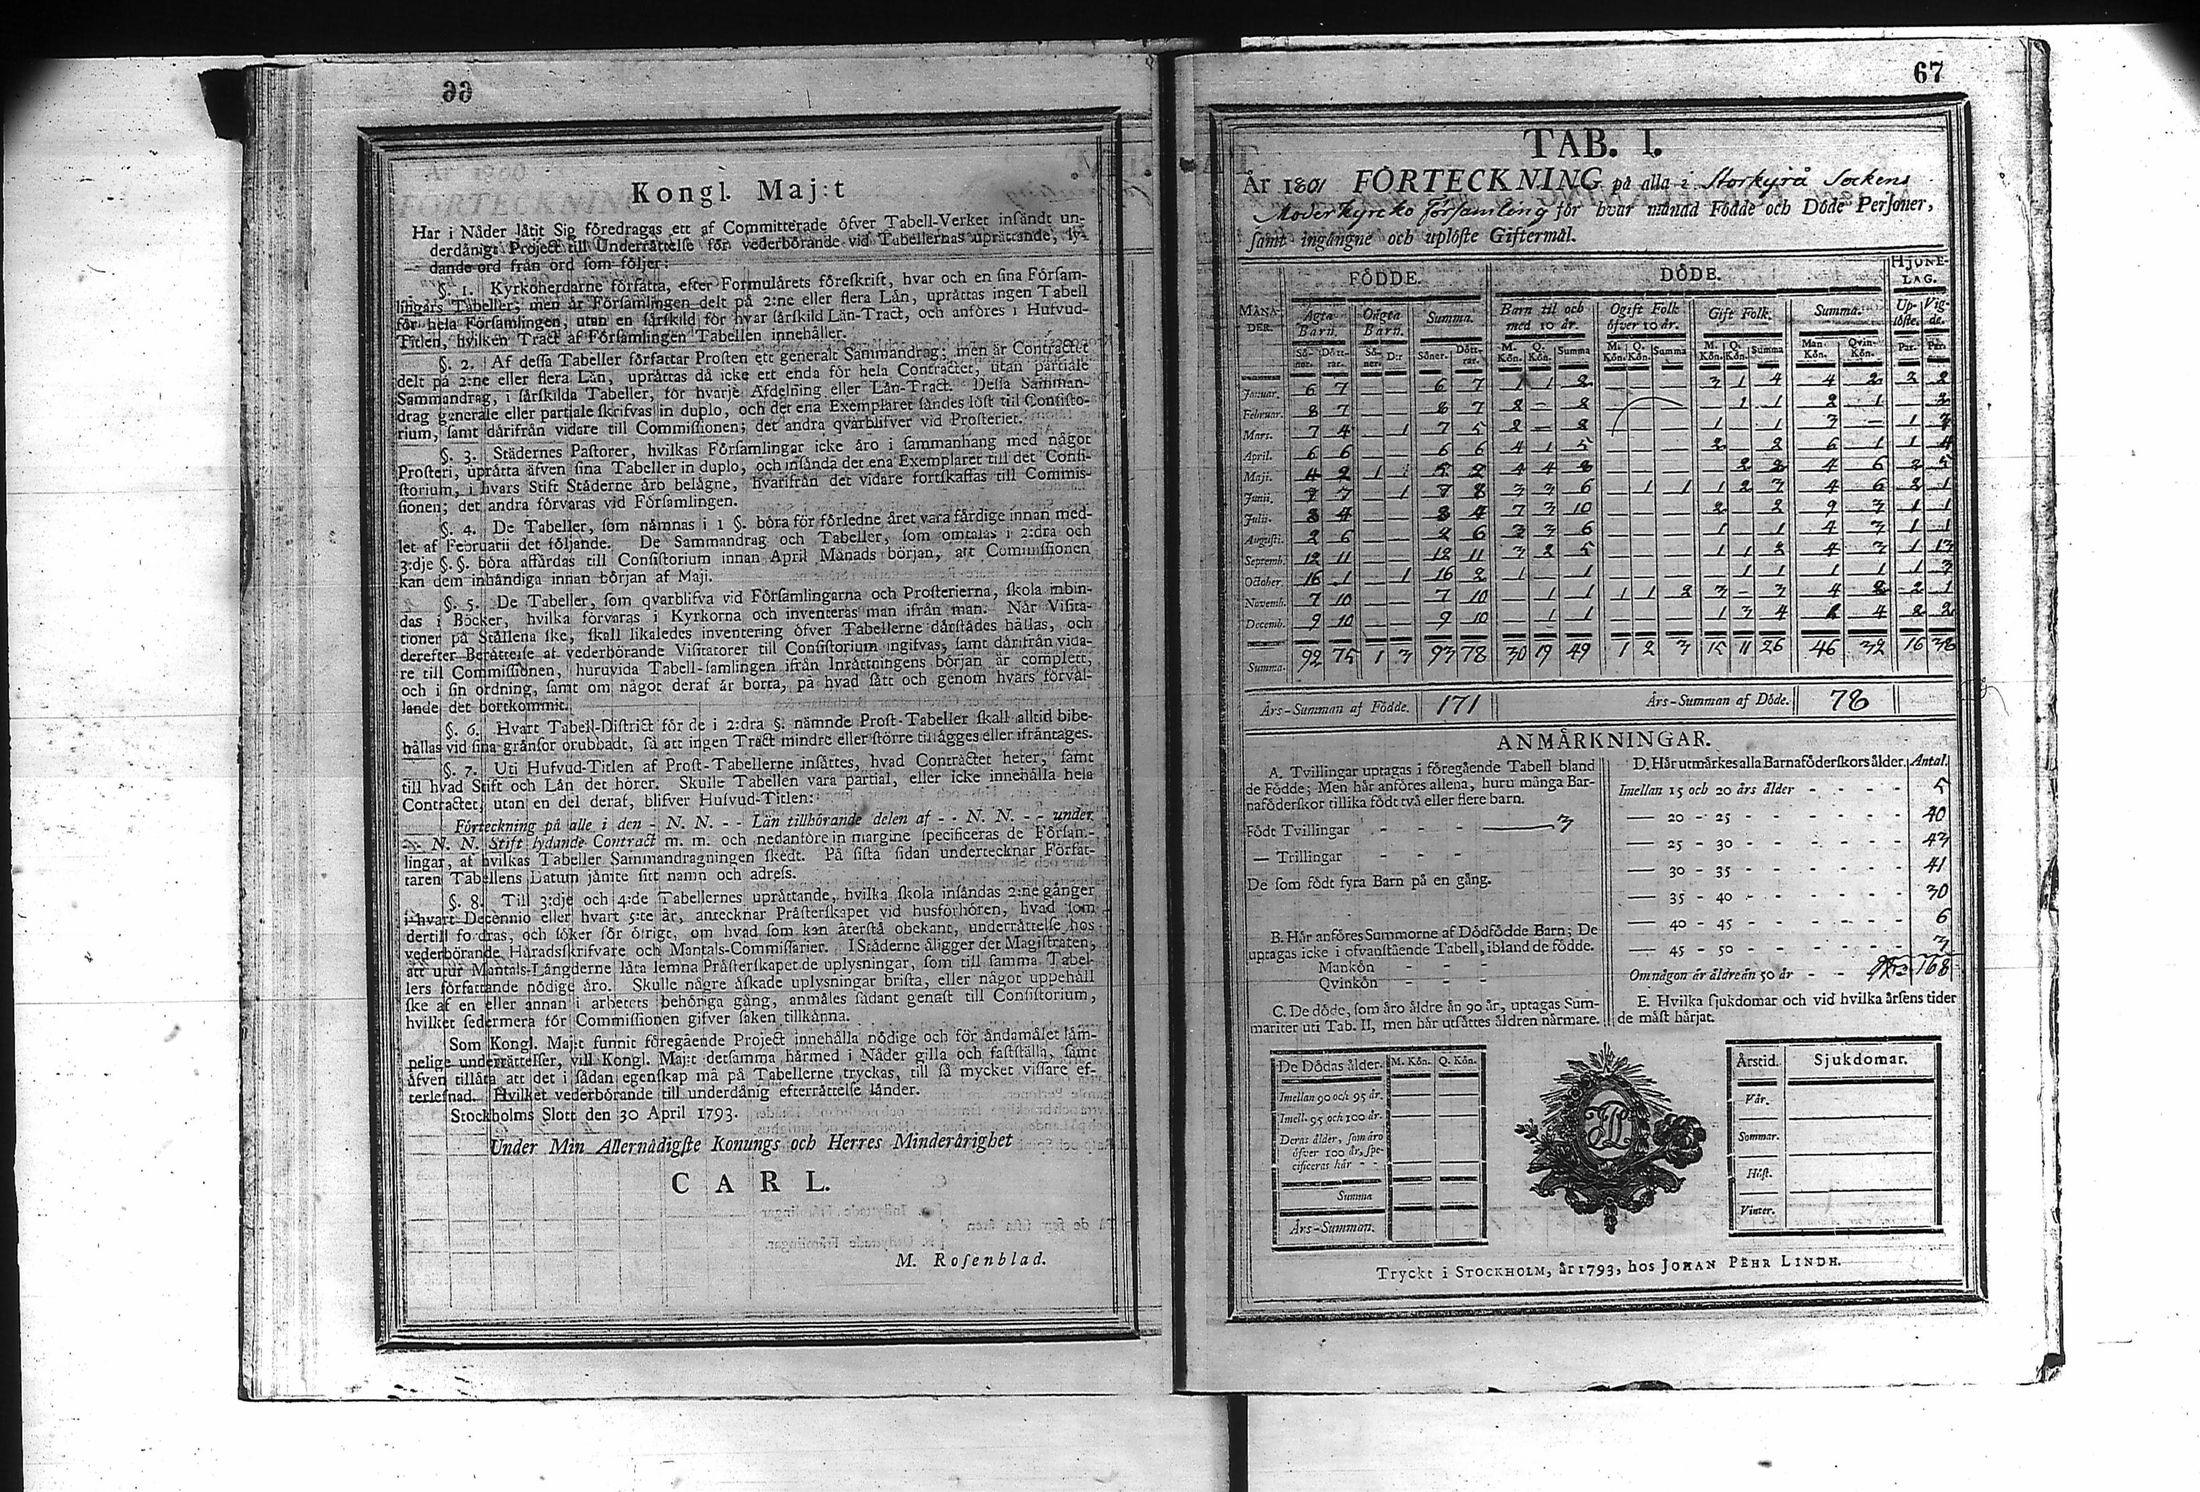 66
Kongl. Maj:t
Har i Nåder låtit Sig föredragas ett af Committerade öfver Tabell-Verket insändt un-
derdånigt Project till Underrättelse för vederbörande vid Tabellernas upråttande, ly-
dande ord från ord som följer:
§. 1. Kyrkoherdarne författa, efter Formulårets föreskrift, hvar och en sina Försam-
lingars Tabeller; men är Församlingen delt på 2:ne eller flera Lån, upråttas ingen Tabell
för hela Församlingen, utan en sårskild för hvar sårskild Lån-Tract, och anföres i Hufvud-
Titlen, hvilken Tract af Församlingen Tabellen innehåller.
§. 2. Af dessa Tabeller författar Prosten ett generalt Sammandrag; men är Contractet
delt på 2:ne eller flera Lån, upråttas då icke ett enda för hela Contractet, utan partiale
Sammandrag, i sårskilda Tabeller, för hvarje Afdelning eller Lån-Tract. Dessa Samman-
drag generale eller partiale skrifvas in duplo, och det ena Exemplaret såndes löst till Consisto-
rium, samt dårifrån vidare till Commissionen; det andra qvarblifver vid Prosteriet.
§. 3. Städernes Pastorer, hvilkas Församlingar icke åro i sammanhang med något
Prosteri, upråtta åfven sina Tabeller in duplo, och insånda det ena Exemplaret till det Consi-
storium, i hvars Stift Ståderne åro belågne, hvarifrån det vidare fortskaffas till Commis-
sionen; det andra förvaras vid Församlingen.
§. 4. De Tabeller, som nåmnas i 1 §. böra för förledne året vara fårdige innan med-
let af Februarii det följande. De Sammandrag och Tabeller, som omtalas i 2:dra och
3:dje §. §. böra affårdas till Consistorium innan April Månads början, att Commissionen
kan dem inhändiga innan början af Maji.
§. 5. De Tabeller, som qvarblifva vid Församlingarna och Prosterierna, skola inbin-
das i Böcker, hvilka förvaras i Kyrkorna och inventeras man ifrån man. Når Visita-
tioner på Stållena ske, skall likaledes inventering öfver Tabellerne dårstådes hållas, och
derefter Beråttelse af vederbörande Visitatorer till Consistorium ingifvas, samt dårifrån vida-
re till Commissionen, huruvida Tabell-samlingen ifrån Inråttningens början år complett,
och i sin ordning, samt om något deraf år borta, på hvad sått och genom hvars förval-
lande det bortkommit.
§. 6. Hvart Tabell-District för de i 2:dra §. nämnde Prost-Tabeller skall alltid bibe-
hållas vid sina grånsor orubbadt, så att ingen Tract mindre eller större tillågges eller ifråntages.
§. 7. Uti Hufvud-Titlen af Prost-Tabellerne insåttes, hvad Contractet heter, samt
till hvad Stift och Lån det hörer. Skulle Tabellen vara partial, eller icke innehålla hela
Contractet, utan en del deraf, blifver Hufvud-Titlen:
Förteckning på alle i den - N. N. - - Län tillhörande delen af - - N. N. - - under
- - N. N. Stift lydande Contract m. m. och nedanföre in margine specificeras de Försam-
lingar, af hvilkas Tabeller Sammandragningen skedt. På sista sidan undertecknar Förfat-
taren Tabellens Datum jåmte sitt namn och adress.
§. 8. Till 3:dje och 4:de Tabellernes upråttande, hvilka skola insåndas 2:ne gånger
i hvart Decennio eller hvart 5:te år, antecknar Pråsterskapet vid husförhören, hvad som
dertill fordras, och söker för öfrigt, om hvad som kan återstå obekant, underråttelse hos
vederbörande Håradsskrifvare och Mantals-Commissarier. I Ståderne åligger det Magistraten,
att utur Mantals-Långderne låta lemna Pråsterskapet de uplysningar, som till samma Tabel-
lers författande nödige åro. Skulle någre åskade uplysningar brista, eller något uppehåll
ske af en eller annan i arbetets behöriga gång, anmåles sådant genast till Consistorium,
hvilket sedermera för Commissionen gifver saken tillkånna.
Som Kongl. Maj:t funnit föregående Project innehålla nödige och för åndamålet låm-
pelige underråttelser, vill Kongl. Maj:t detsamma hårmed i Nåder gilla och faststålla, samt
åfven tillåta att det i sådan egenskap må på Tabellerne tryckas, till så mycket vissare ef-
terlefnad. Hvilket vederbörande till underdånig efterråttelse lånder.
Stockholms Slott den 30 April 1793.
Under Min Allernådigste Konungs och Herres Minderårighet
CARL.
M. Rosenblad.
67
TAB. I.
År 1801 FÖRTECKNING på alla i Storkyrå Sockens
Moderkyrcko Församling för hvar månad Födde och Döde Personer,
samt ingångne och uplöste Giftermål.
FÖDDE. DÖDE. HJONE-
LAG.
MÅNA-
DER. Ägta
Barn. Oägta
Barn. Summa. Barn til och
med 10 år. Ogift Folk
öfver 10 år. Gift Folk. Summa. Up-
löste. Vig-
de.
Sö-
ner. Dött-
rar. Sö-
ner. D:r Söner. Dött-
rar. M.
Kön. Q.
Kön. Summa M.
Kön. Q.
Kön. Summa M.
Kön. Q.
Kön. Summa Man
Kön. Qvin-
Kön. Par. Par.
Januar. 6 7 — — 6 7 1 1 2 — — — 3 1 4 4 2 2 2
Februar. 8 7 — — 8 7 2 — 2 — — — — 1 1 2 1 — 3
Mars. 7 4 — 1 7 5 2 — 2 — — — 1 — 1 3 — 1 3
April. 6 6 — — 6 6 4 1 5 — — — 2 — 2 6 1 1 4
Maji. 4 2 1 — 5 2 4 4 8 — — — — 2 2 4 6 2 5
Junii. 7 7 — 1 7 8 3 3 6 — 1 1 1 2 3 4 6 2 1
Julii. 8 4 — — 8 4 7 3 10 — — — 2 — 2 9 3 1 1
Augusti. 2 6 — — 2 6 3 3 6 — — — 1 — 1 4 3 1 1
Septemb. 12 11 — — 12 11 3 2 5 — — — 1 1 2 4 3 1 13
October. 16 1 — 1 16 2 1 — 1 — — — — 1 1 1 1 1 3
Novemb. 7 10 — — 7 10 — 1 1 1 1 2 3 — 3 4 2 2 1
Decemb. 9 10 — — 9 10 — 1 1 — — — 1 3 4 4 2 2
Summa. 92 75 1 3 93 78 30 19 49 1 2 3 15 11 26 46 32 16 38
Års-Summan af Födde. 171 Års-Summan af Döde. 78
ANMÄRKNINGAR.
A. Tvillingar uptagas i föregående Tabell bland
de Födde; Men hår anföres allena, huru många Bar-
naföderskor tillika födt två eller flere barn.
Födt Tvillingar - - - 3
— Trillingar - - -
De som födt fyra Barn på en gång.
B. Hår anföres Summorne af Dödfödde Barn; De
uptagas icke i ofvanstående Tabell, ibland de födde.
Mankön - - -
Qvinkön - - -
C. De döde, som åro åldre ån 90 år, uptagas Sum-
mariter uti Tab. II, men hår utsåttes åldren nårmare.
D. Hår utmårkes alla Barnaföderskors ålder. Antal.
Imellan 15 och 20 års ålder - - - - 5
— 20 - 25 - - - - - - 40
— 25 - 30 - - - - - - 43
— 30 - 35 - - - - - - 41
— 35 - 40 - - - - - - 30
— 40 - 45 - - - - - - 6
— 45 - 50 - - - - - - 3
Om någon år åldre ån 50 år - - 168
E. Hvilka sjukdomar och vid hvilka årsens tider
de måst hårjat.
De Dödas ålder. M. Kön. Q. Kön.
Imellan 90 och 95 år.
Imell. 95 och 100 år.
Deras ålder, som åro
öfver 100 år, spe-
cificeras hår - -
Summa
Års-Summan.
Årstid. Sjukdomar.
Vår.
Sommar.
Höst.
Vinter.
Tryckt i STOCKHOLM, år 1793, hos JOHAN PEHR LINDH.